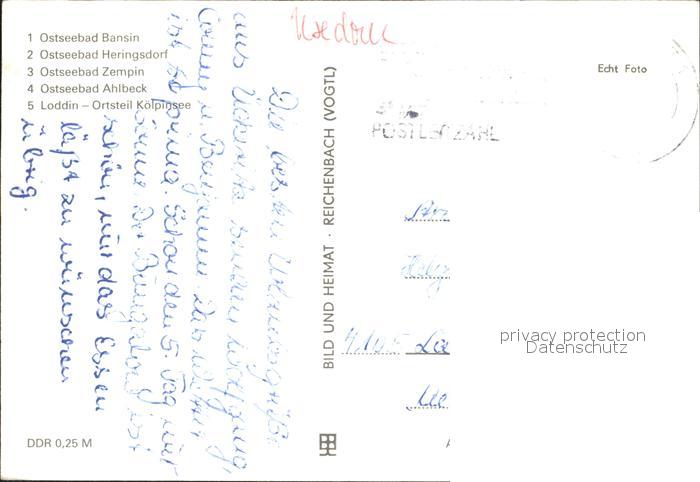 Usedom
1 Ostseebad Bansin
2 Ostseebad Heringsdorf
3 Ostseebad Zempin
4 Ostseebad Ahlbeck
5 Loddin – Ortsteil Kölpinsee
Die besten Urlaubsgrüße
aus Ückeritz senden Wolfgang,
Conny u. Benjamin. Das Wetter
ist prima. Schon den 5. Tag nur
Sonne. Der Bungalow ist
schön, nur das Essen
läßt zu wünschen
übrig.
BILD UND HEIMAT · REICHENBACH (VOGTL)
Echt Foto
POSTLEITZAHL
DDR 0,25 M
privacy protection
Datenschutz